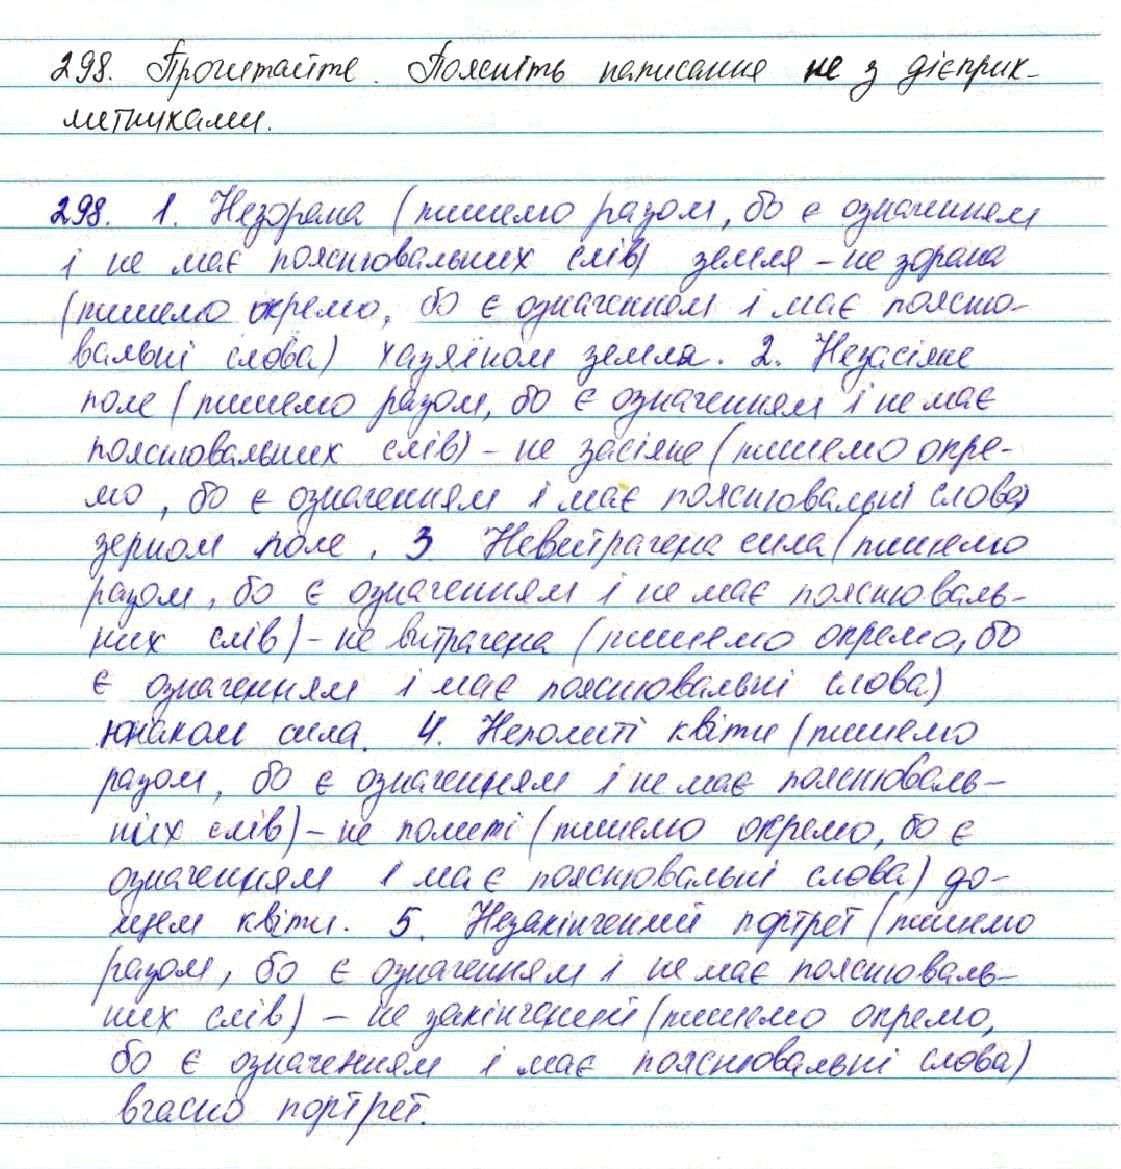 298. Прочитайте. Поясніть написання не з дієприк-
метниками.
298. 1. Незорана (пишемо разом, бо є означенням
і не має пояснювальних слів) земля – не зорана
(пишемо окремо, бо є означенням і має поясню-
вальні слова) хазяїном земля. 2. Незасіяне
поле (пишемо разом, бо є означенням і не має
пояснювальних слів) – не засіяне (пишемо окре-
мо, бо є означенням і має пояснювальні слова)
зерном поле. 3 Невитрачена сила (пишемо
разом, бо є означенням і не має пояснюваль-
них слів) – не витрачена (пишемо окремо, бо
є означенням і має пояснювальні слова)
юнаком сила. 4. Неполиті квіти (пишемо
разом, бо є означенням і не має пояснюваль-
них слів) – не политі (пишемо окремо, бо є
означенням і має пояснювальні слова) до-
щем квіти. 5. Незакінчений портрет (пишемо
разом, бо є означенням і не має пояснюваль-
них слів) – не закінчений (пишемо окремо,
бо є означенням і має пояснювальні слова)
вчасно портрет.